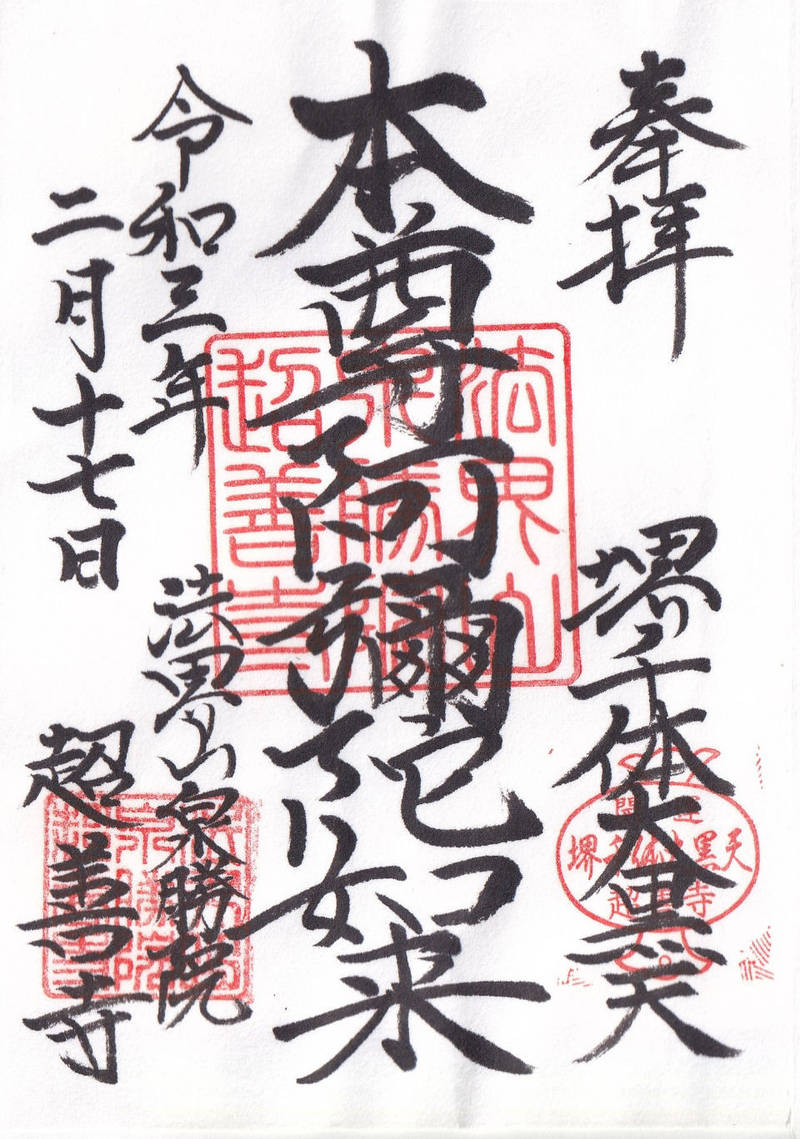 奉拝
堺一体大黒天
本尊阿彌陀如来
令和三年
二月十七日
法界山泉勝院
超善寺
法界山
泉勝院
超善寺